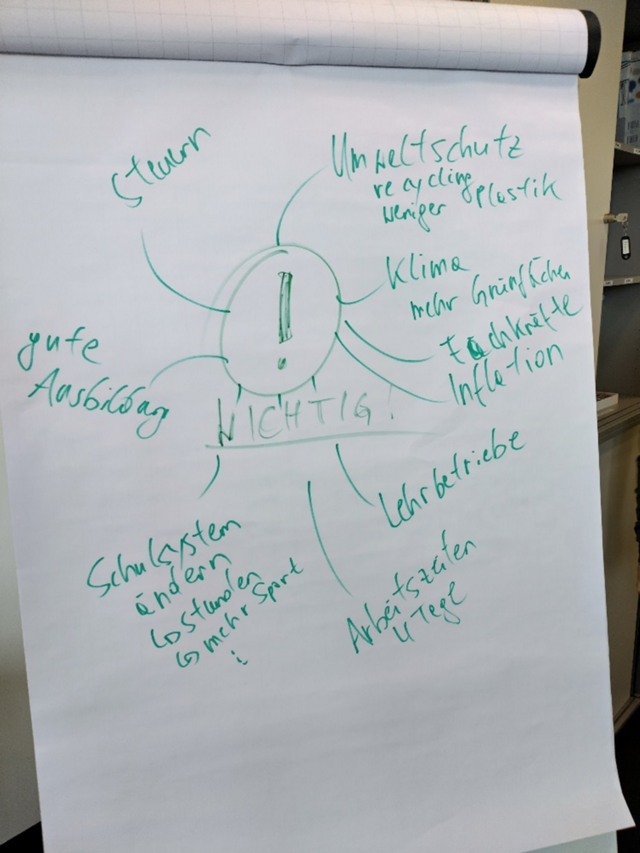 Steuern
Umweltschutz
recycling
weniger Plastik
Klima
mehr Grünflächen
Fachkräfte
Inflation
gute
Ausbildung
!
WICHTIG!
Lehrbetriebe
Schulsystem
ändern
↳ Stunden
↳ mehr Sport
Arbeitszeiten
4 Tage